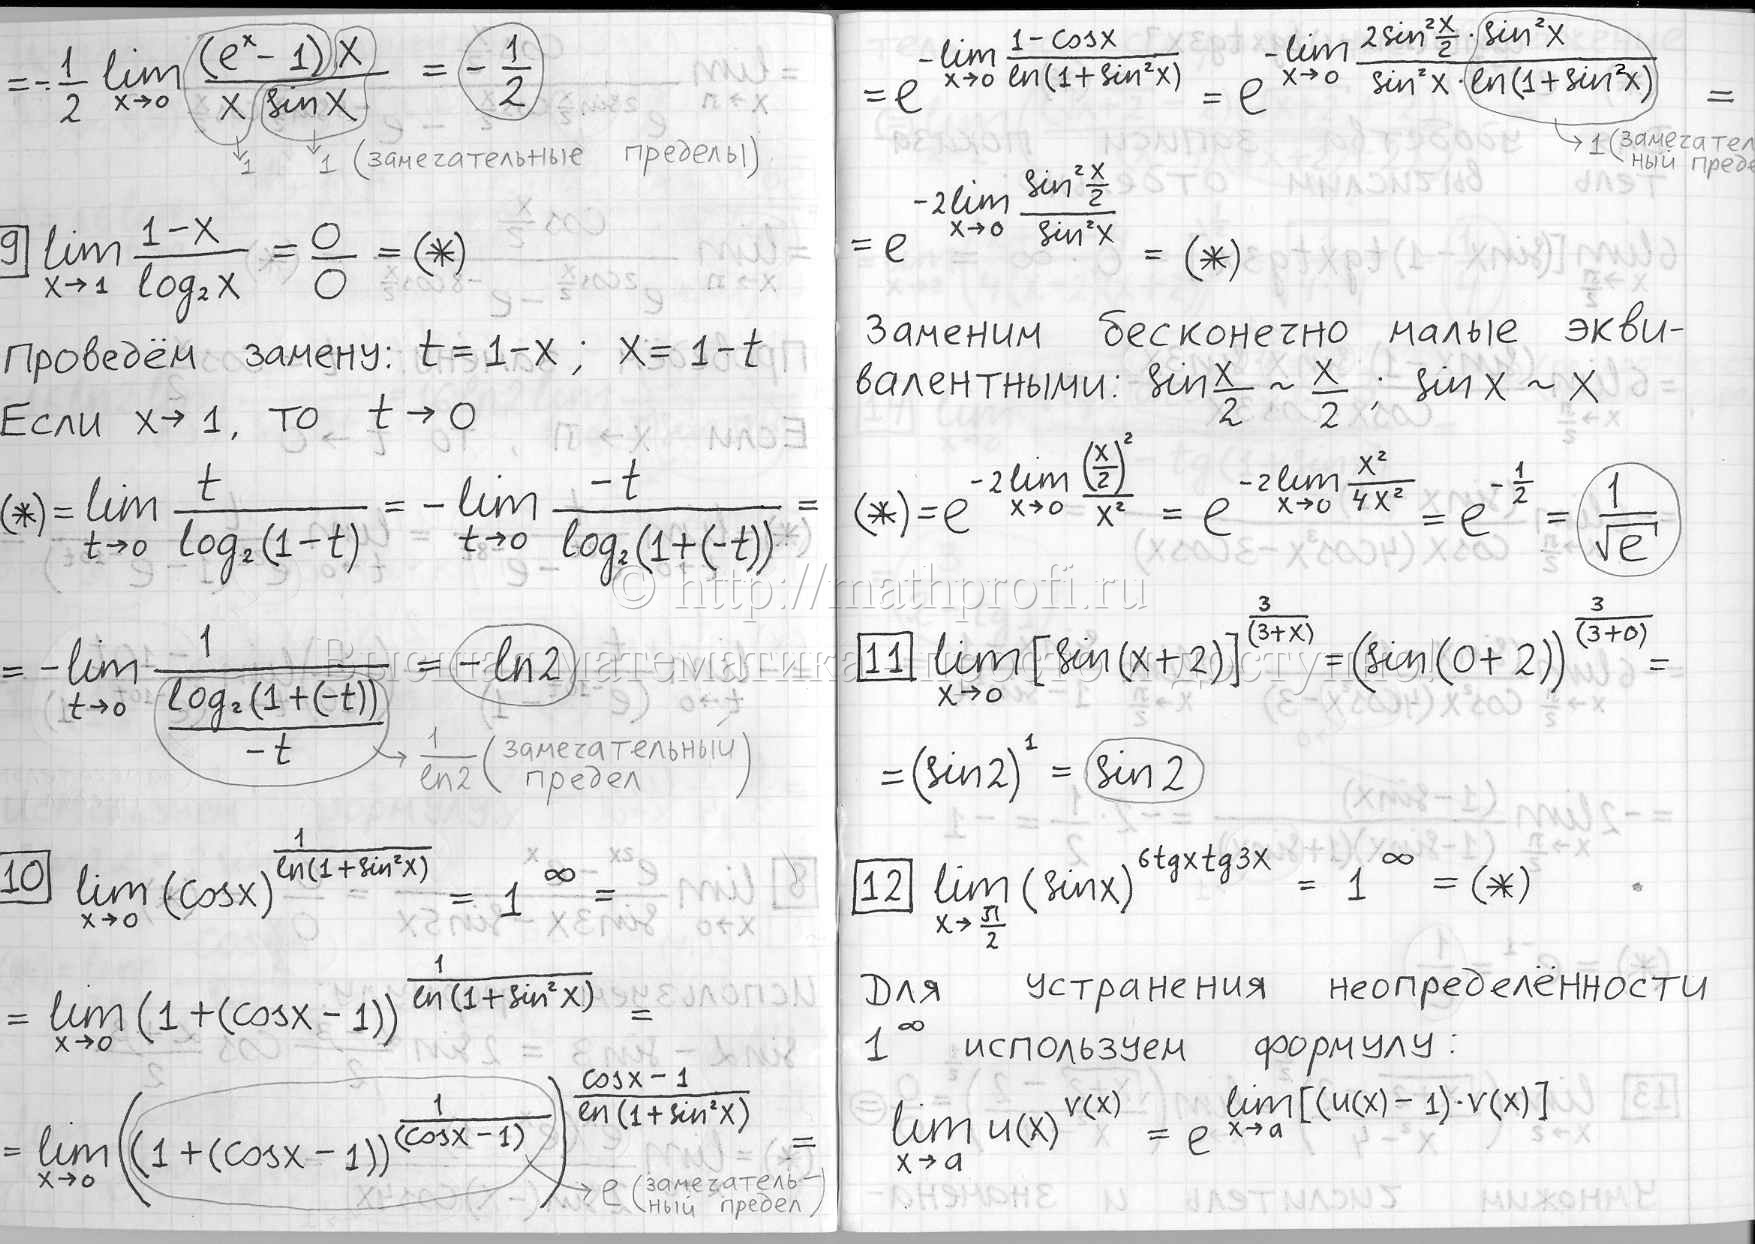 = -1/2 lim x→0 (eˣ - 1) x / x sin x = -1/2
→ 1 → 1 (замечательные пределы)
9 lim x→1 1-x / log₂x = 0/0 = (*)
Проведём замену: t = 1-x ; x = 1-t
Если x→1, то t→0
(*) = lim t→0 t / log₂(1-t) = - lim t→0 -t / log₂(1+(-t)) =
= - lim t→0 1 / (log₂(1+(-t)) / -t) = -ln2
→ 1/ln2 (замечательный предел)
10 lim x→0 (cosx)^(1 / ln(1+sin²x)) = 1^∞ =
= lim x→0 (1+(cosx-1))^(1 / ln(1+sin²x)) =
= lim x→0 ((1+(cosx-1))^(1 / (cosx-1)))^(cosx-1 / ln(1+sin²x)) =
→ e (замечатель-
ный предел)
= e^(-lim x→0 1-cosx / ln(1+sin²x)) = e^(-lim x→0 2sin²x/2 · sin²x / sin²x · ln(1+sin²x)) =
→ 1 (замечател
ный преде
= e^(-2 lim x→0 sin²x/2 / sin²x) = (*)
Заменим бесконечно малые экви-
валентными: sin x/2 ~ x/2 ; sin x ~ x
(*) = e^(-2 lim x→0 (x/2)² / x²) = e^(-2 lim x→0 x² / 4x²) = e^(-1/2) = 1/√e
© http://mathprofi.ru
11 lim x→0 [sin(x+2)]^(3 / (3+x)) = (sin(0+2))^(3 / (3+0)) =
= (sin2)¹ = sin2
12 lim x→π/2 (sinx)^(6tgxtg3x) = 1^∞ = (*)
Для устранения неопределённости
1^∞ используем формулу:
lim x→a u(x)^(v(x)) = e^(lim x→a [(u(x)-1)·v(x)])